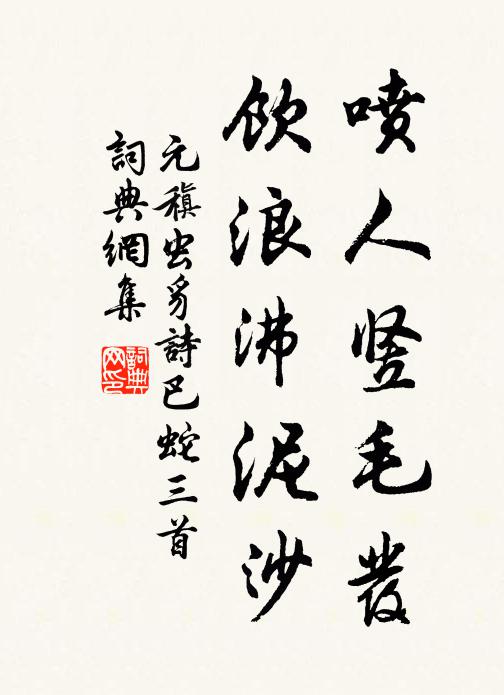 喷人竖毛发
飲浪沸泥沙
元稹虫豸詩巴蛇三首
詞典網集
詞典
网印